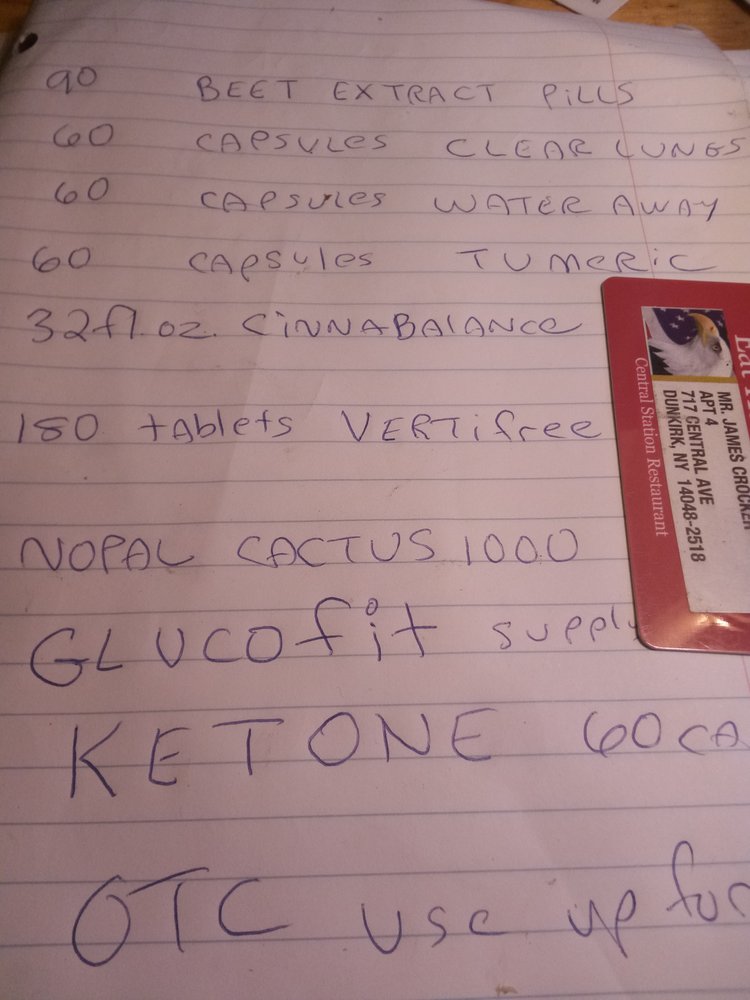 90 BEET EXTRACT PILLS
60 CAPSULES CLEAR LUNGS
60 CAPSULES WATER AWAY
60 CAPSULES TUMERIC
32fl.oz. CINNABALANCE
180 tAblets VERTifree
NOPAL CACTUS 1000
GLUCOfit supply
KETONE 60 CA
OTC use up for
Central Station Restaurant
MR. JAMES CROCKER
APT 4
717 CENTRAL AVE
DUNKIRK, NY 14048-2518